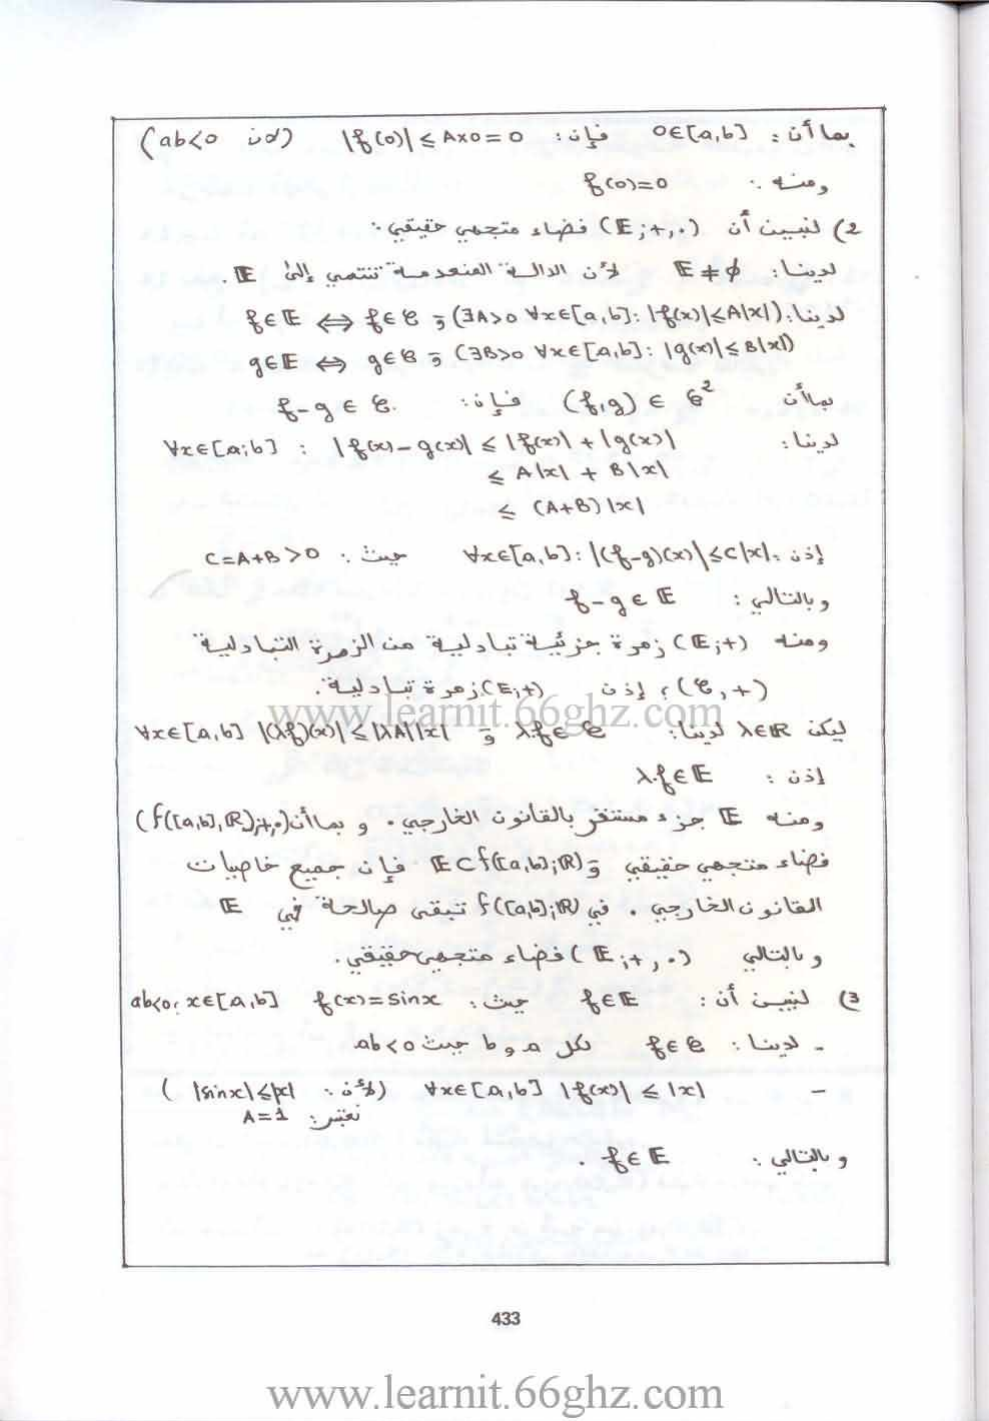 بما أن : 0∈[a,b] فإن : |f(0)| ≤ A×0 = 0 (لأن ab<0)
ومنه : f(0)=0
2) لنبين أن (E;+,.) فضاء متجهي حقيقي :
لدينا : E≠ϕ لأن الدالة المنعدمة تنتمي إلى E .
لدينا : f∈E ⇔ f∈C و (∃A>0 ∀x∈[a,b]: |f(x)|≤A|x|)
g∈E ⇔ g∈C و (∃B>0 ∀x∈[a,b]: |g(x)|≤B|x|)
بما أن (f,g) ∈ C² فإن : f-g ∈ C.
لدينا : ∀x∈[a;b] : |f(x)-g(x)| ≤ |f(x)| + |g(x)|
≤ A|x| + B|x|
≤ (A+B)|x|
إذن : ∀x∈[a,b]: |(f-g)(x)|≤C|x| حيث : C=A+B>0
وبالتالي : f-g∈E
ومنه (E;+) زمرة جزئية تبادلية من الزمرة التبادلية
(C,+) ، إذن (E;+) زمرة تبادلية.
www.learnit.66ghz.com
ليكن λ∈ℝ لدينا : λ.f∈C و ∀x∈[a,b] |(λf)(x)|≤|λA||x|
إذن : λ.f∈E
ومنه E جزء مستقر بالقانون الخارجي . و بما أن (f([a,b],ℝ);+,.)
فضاء متجهي حقيقي و E⊂f([a,b];ℝ) فإن جميع خاصيات
القانون الخارجي . في f([a,b];ℝ) تبقى صالحة في E
و بالتالي (E;+,.) فضاء متجهي حقيقي.
3) لنبين أن : f∈E حيث : f(x)=sinx ab<0; x∈[a,b]
- لدينا : f∈C لكل a و b حيث ab<0
- ∀x∈[a,b] |f(x)| ≤ |x| (لأن : |sinx|≤|x| )
نعتبر : A=1
و بالتالي : f∈E .
433
www.learnit.66ghz.com